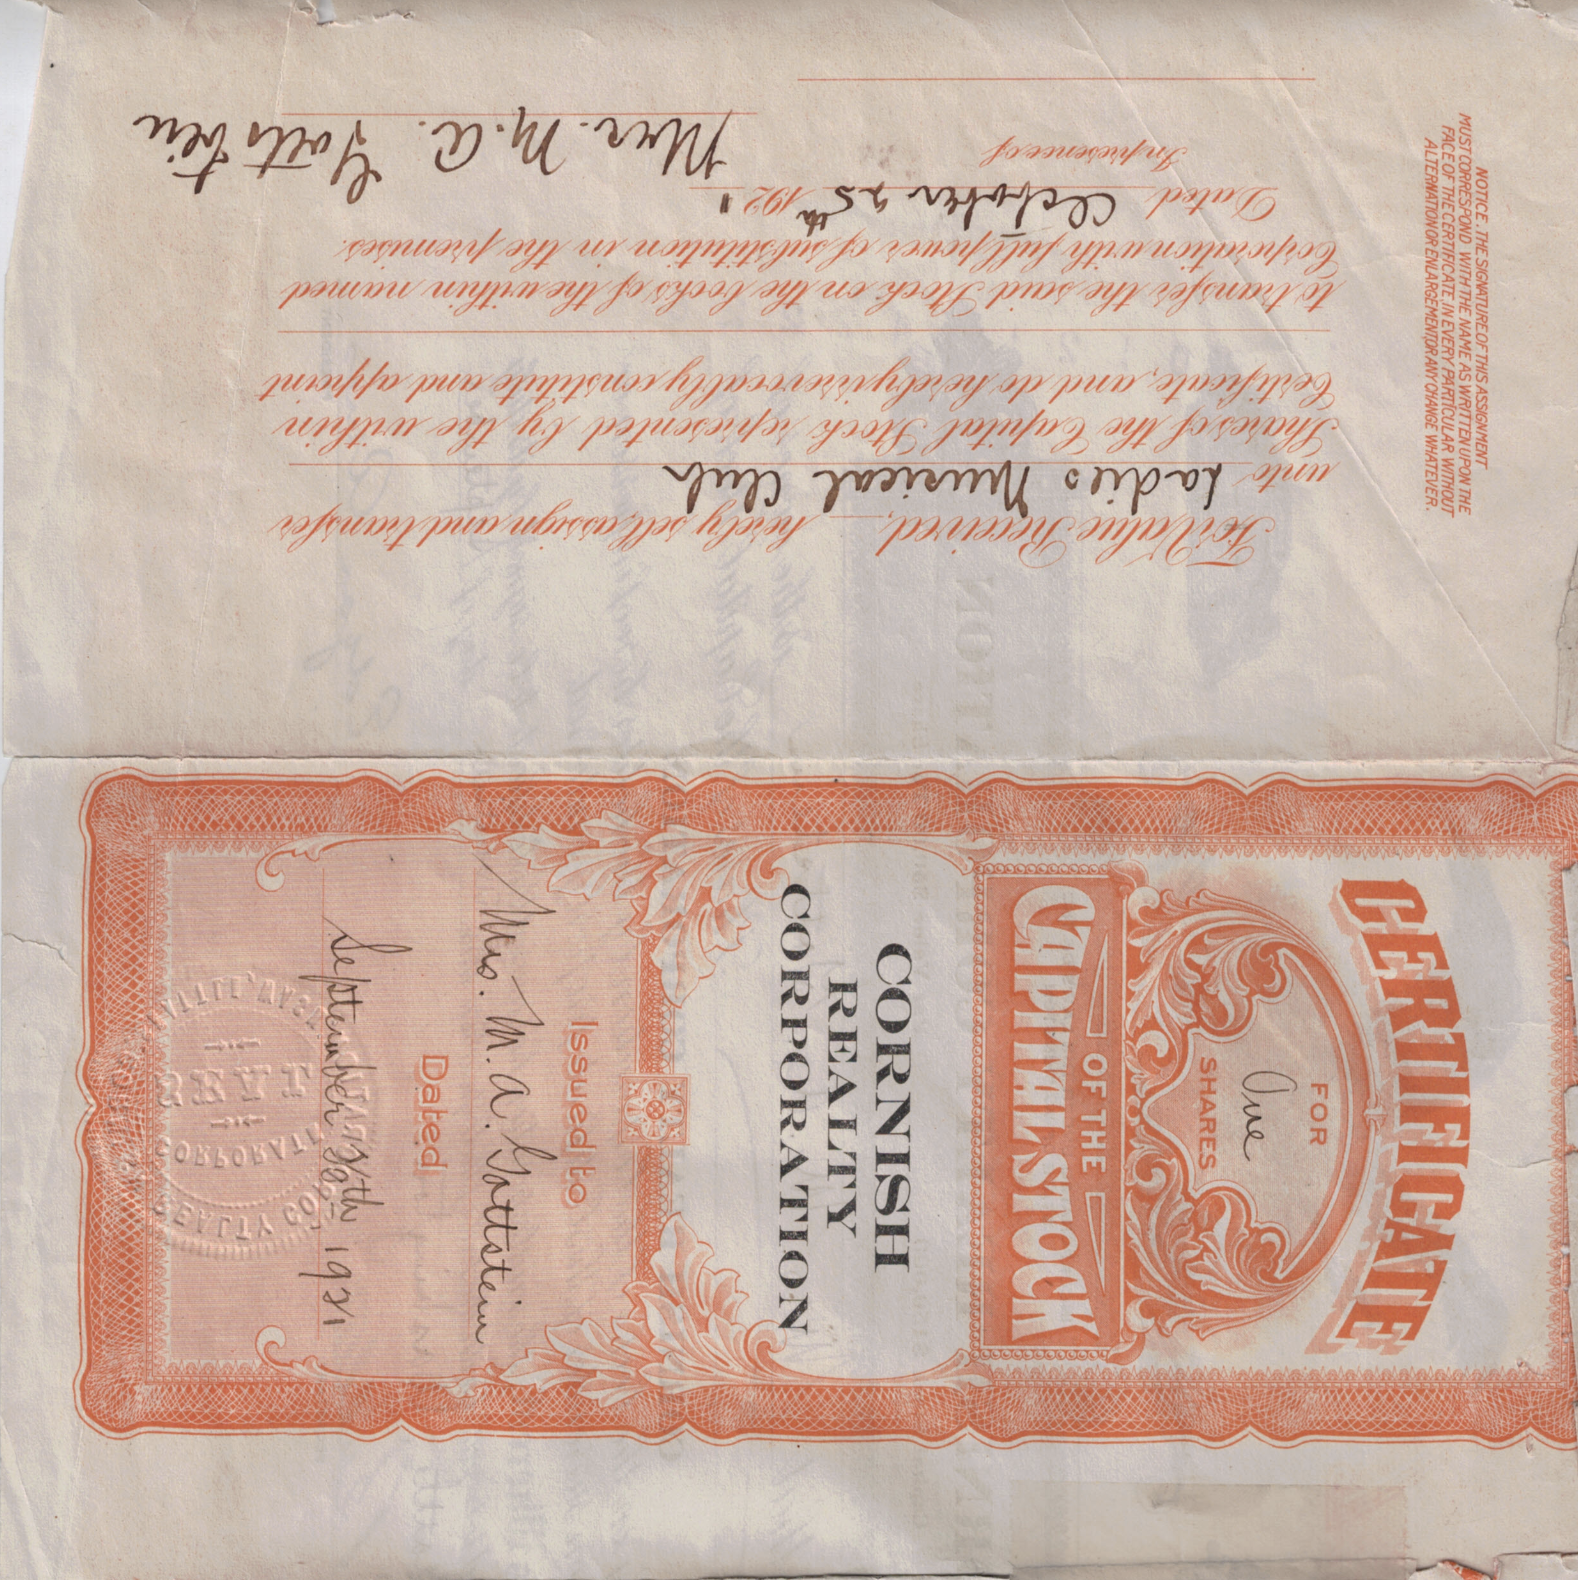 For Value Received, hereby sell, assign and transfer
unto Ladies Musical Club
Shares of the Capital Stock represented by the within
Certificate, and do hereby irrevocably constitute and appoint
to transfer the said Stock on the books of the within named
Corporation with full power of substitution in the premises.
Dated October 25th 1921
In presence of
Mrs. M. A. Gottstein
NOTICE. THE SIGNATURE OF THIS ASSIGNMENT
MUST CORRESPOND WITH THE NAME AS WRITTEN UPON THE
FACE OF THE CERTIFICATE, IN EVERY PARTICULAR WITHOUT
ALTERNATION OR ENLARGEMENT OR ANY CHANGE WHATEVER.
CERTIFICATE
FOR
One
SHARES
OF THE
CAPITAL STOCK
CORNISH
REALTY
CORPORATION
Issued to
Mrs. M. A. Gottstein
Dated
September 30th 1921
REALTY CO
CORPORATE